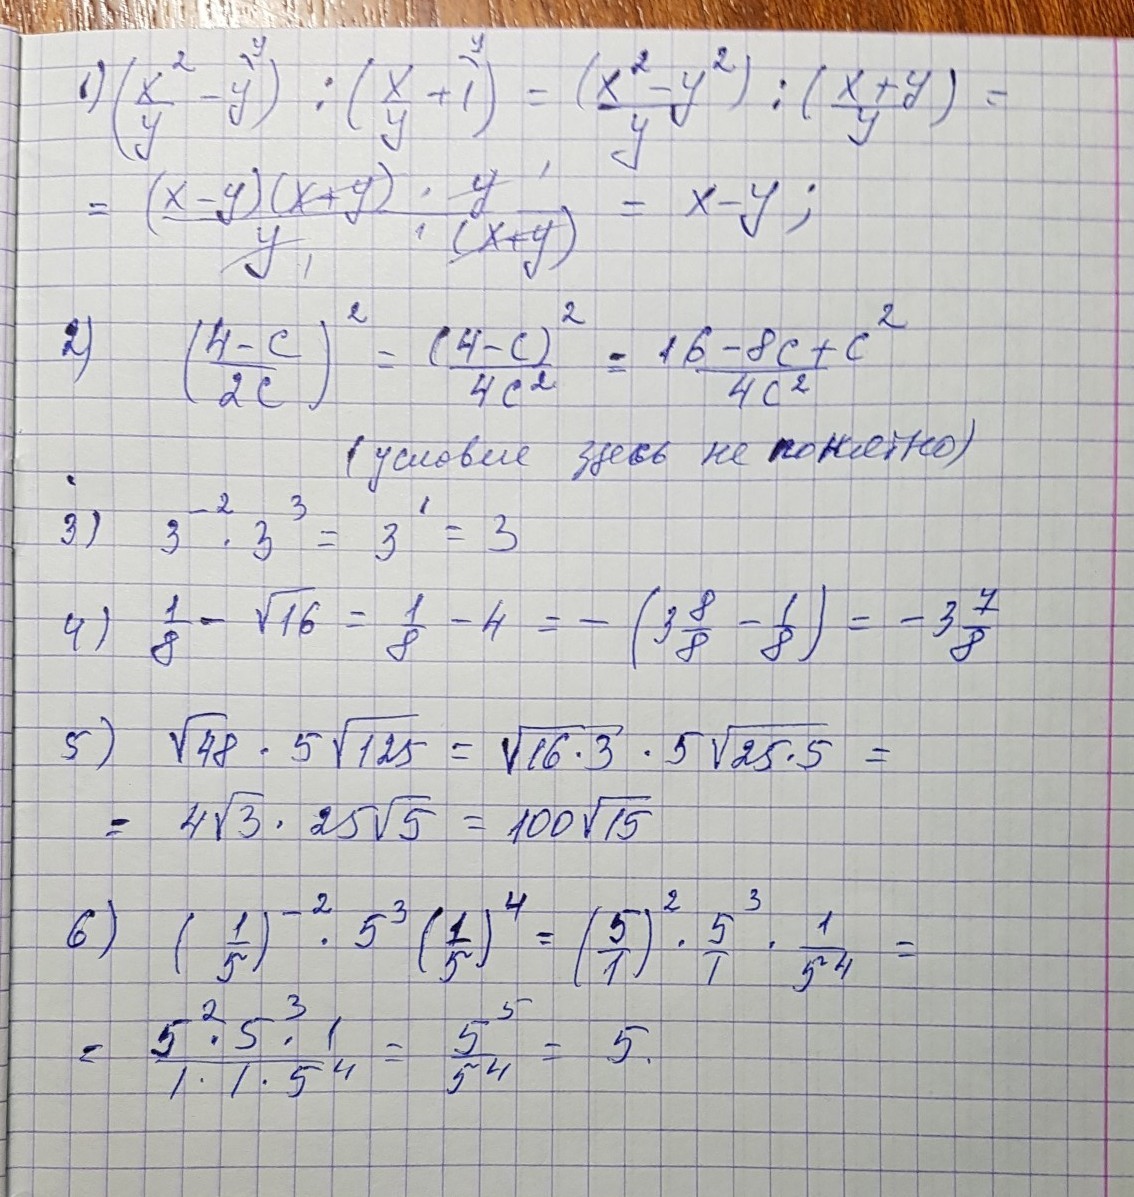 1) (x²/y - y^y) : (x/y + 1^y) = (x² - y²/y) : (x+y/y) =
= (x-y)(x+y) · y ¹ / y ₁ · ¹ (x+y) = x-y;
2) (4-c/2c)² = (4-c)²/4c² = 16-8c+c²/4c²
(условие здесь не понятно)
3) 3⁻² · 3³ = 3¹ = 3
4) 1/8 - √16 = 1/8 - 4 = -(3 8/8 - 1/8) = -3 7/8
5) √48 · 5√125 = √16·3 · 5√25·5 =
= 4√3 · 25√5 = 100√15
6) (1/5)⁻² · 5³ (1/5)⁴ = (5/1)² · 5³/1 · 1/5⁴ =
= 5²·5³·1/1·1·5⁴ = 5⁵/5⁴ = 5.